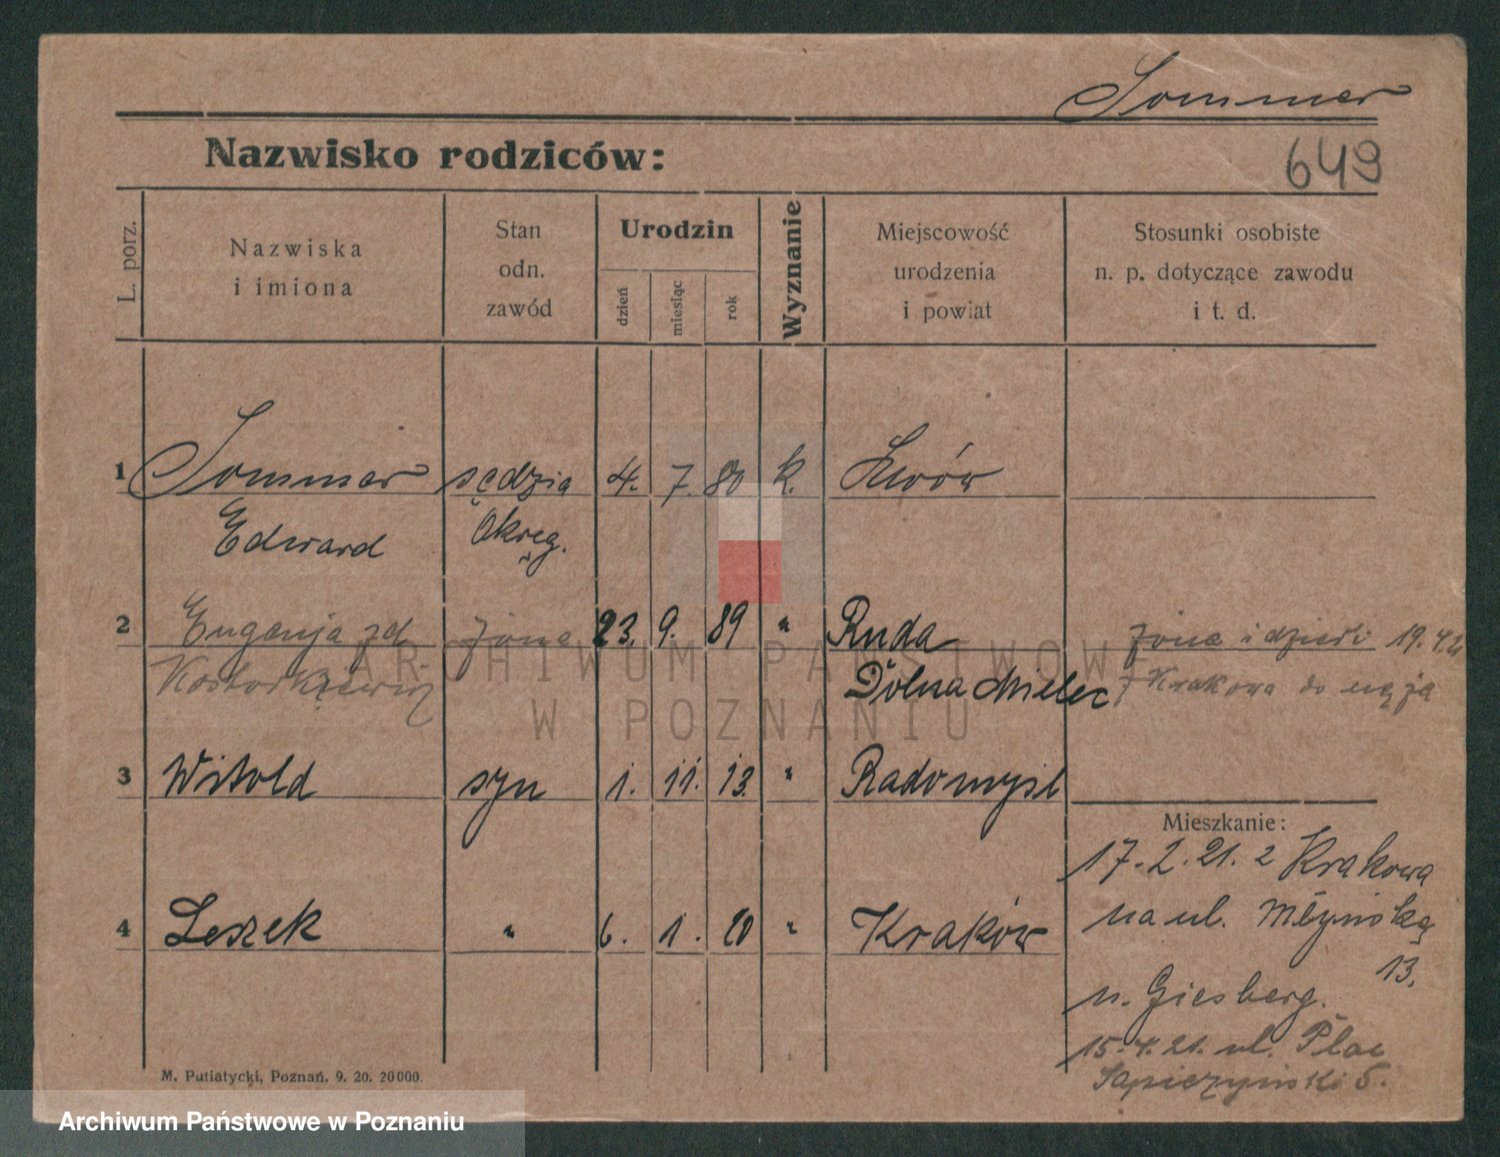 Sommer
Nazwisko rodziców:
649
L. porz.
Nazwiska
i imiona
Stan
odn.
zawód
Urodzin
dzień
miesiąc
rok
Wyznanie
Miejscowość
urodzenia
i powiat
Stosunki osobiste
n. p. dotyczące zawodu
i t. d.
1 Sommer sędzia 4. 7. 80 k. Lwów
Edward Okręg.
2 Eugenja zd żona 23. 9. 89 " Ruda żona i dzieci 19.4.21
Dolna Mielec z Krakowa do męża
3 Witold syn 1. 11. 13. " Radomyśl
Mieszkanie:
17.2.21. z Krakowa
na ul. Młyńską
4 Leszek " 6. 1. 20 " Kraków
13.
u. Giesberg.
15.4.21. ul. Plac
Sapieżyński 5.
M. Putiatycki, Poznań. 9. 20. 20000.
ARCHIWUM PAŃSTWOWE
W POZNANIU
Archiwum Państwowe w Poznaniu